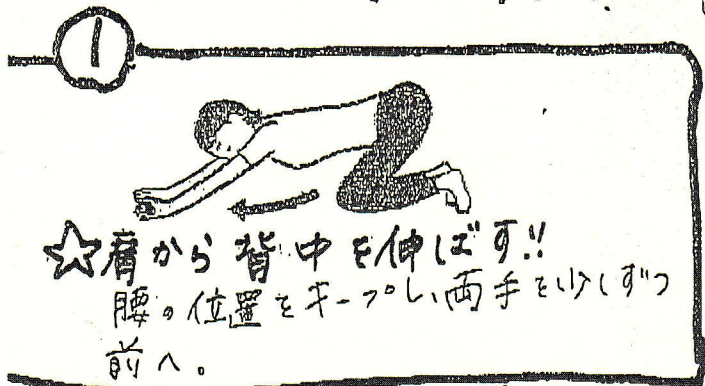 1
☆肩から背中を伸ばす!!
腰の位置をキープし、両手を少しずつ
前へ。